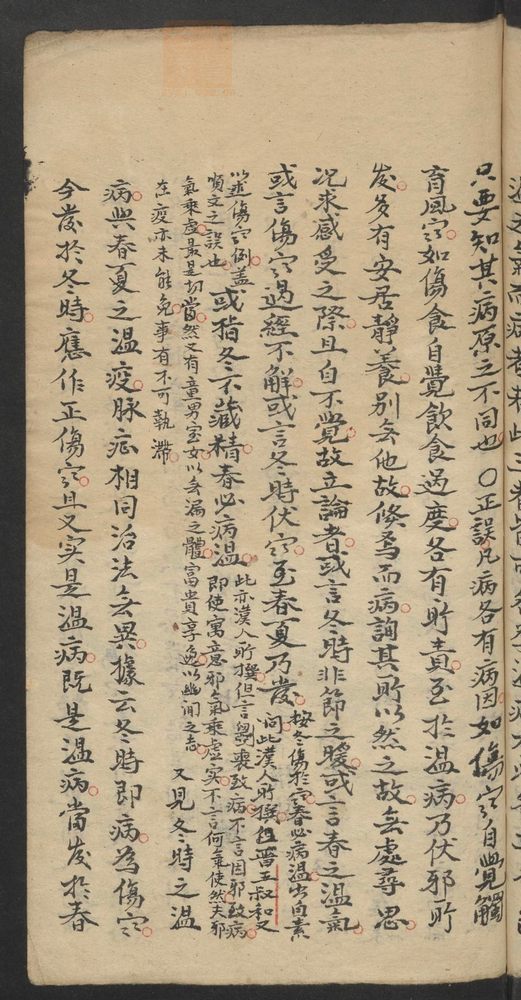 只要知其病原之不同也〇正誤凡病各有病因如傷寒自覺觸
冒風寒如傷食自覺飲食過度各有所責至於溫病乃伏邪所
發多有安居靜養別無他故倏焉而病詢其所以然之故無處尋思
况求感受之際且自不覺故立論者或言冬時非節之暖或言春之溫氣
或言傷寒過經不解或言冬時伏寒至春夏乃發
按冬傷於寒春必病溫出自素
問此漢人所撰但晉王叔和又
以述傷寒例蓋
順文之誤也
或指冬不藏精春必病溫
此亦漢人所撰但言斲喪致病不言因邪致病
即使寓意邪氣乘虛實不言何氣使然夫邪
氣乘虛最是切當然又有童男室女以無漏之體富貴享逸以幽閒之志
在疫亦未能免事有不可執滯
又見冬時之溫
病與春夏之溫疫脉症相同治法無異據云冬時即病為傷寒
今發於冬時應作正傷寒且又实是溫病既是溫病當發於春